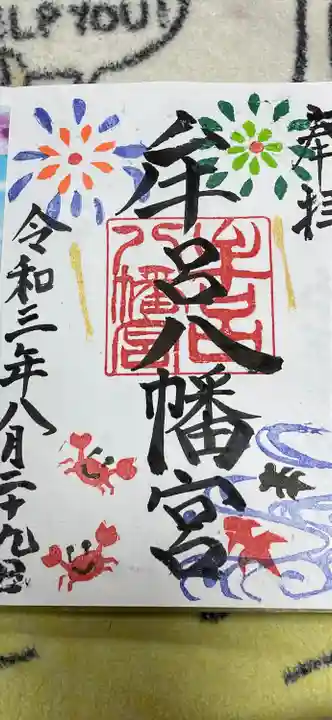 ELP YOU!
奉拝
牟呂八幡宮
牟呂八幡宮
令和三年八月二十九日